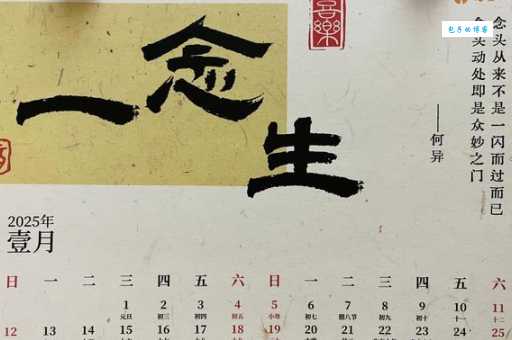 一念生
喜樂
包子的博客
念头从来不是一闪而过而已
念头动处即是众妙之门
——何异
2025年
壹月
日 一 二 三 四 五 六 日 一 二 三 四 五 六
1 2 3 4 5 6 7 8 9 10 11
元旦 初三 初四 初五 小寒 初七 腊八节 初九 初十 十一 十二
12 13 14 15 16 17 18 19 20 21 22 23 24 25